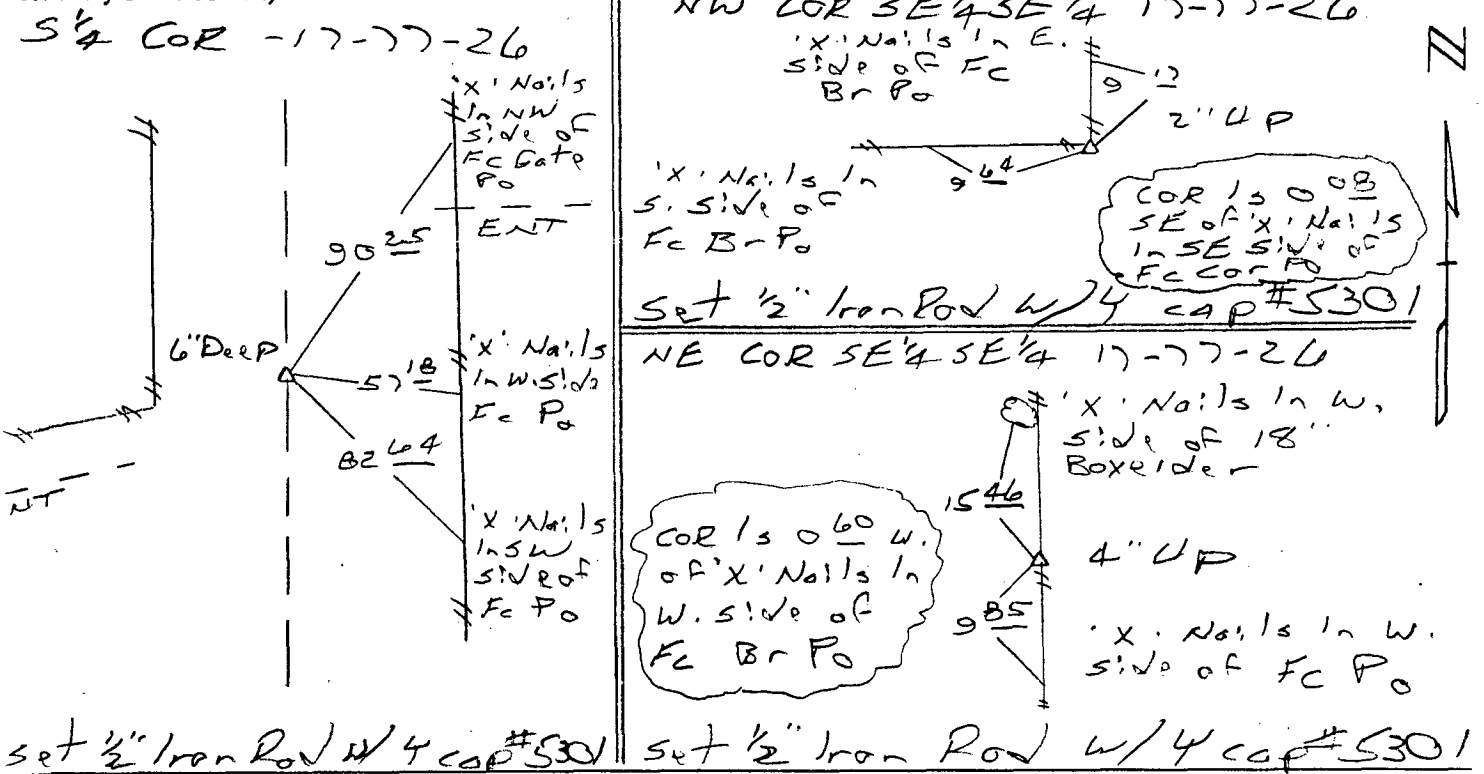 S 1/4 COR - 17-77-26
'X' Nails
In NW
side of
Fc Gate
Po
ENT
90 25
6" Deep
57 18
'X' Nails
In W. side
Fc Po
82 64
NT
'X' Nails
In SW
side of
Fc Po
set 1/2" Iron Rod w/ Y cap #5301
NW COR SE 1/4 SE 1/4 17-77-26
'X' Nails In E.
side of Fc
Br Po
N
9 17
2" UP
9 64
'X' Nails In
S. side of
Fc Br Po
COR Is 0 08
SE of 'X' Nails
In SE side of
Fc Cor Po
set 1/2" Iron Rod w/ Y cap #5301
NE COR SE 1/4 SE 1/4 17-77-26
'X' Nails In W.
side of 18"
Boxelder
15 46
COR Is 0 60 W.
of 'X' Nails In
W. side of
Fc Br Po
4" UP
9 85
'X' Nails In W.
side of Fc Po
set 1/2" Iron Rod w/ Y cap #5301